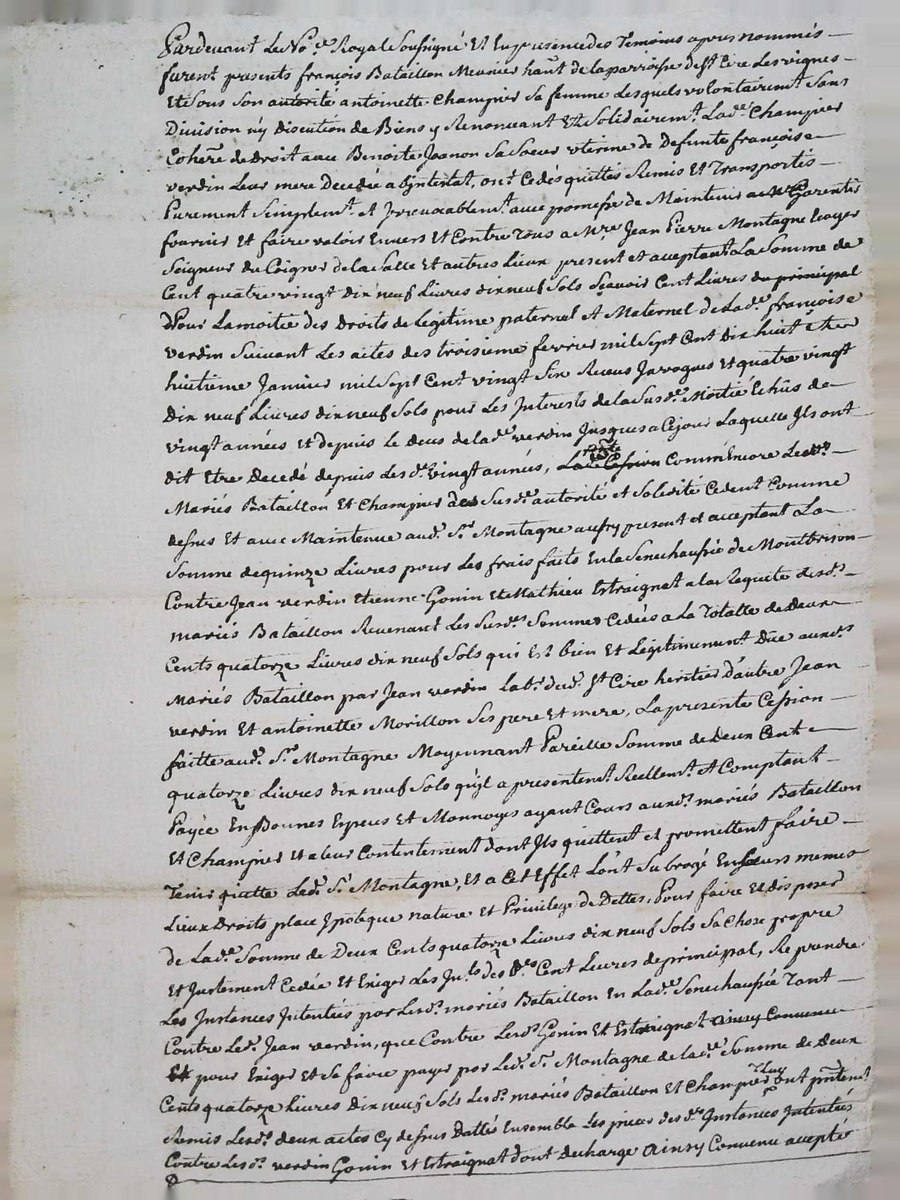 Pardevant Le No.re Royal Soussigné Et En presence des Temoins apres nommés
furent presents françois Bataillon Meusnier hant de la parroisse de st Cire Les vignes
Et Sous Son autorité antoinette Champier Sa femme Lesquels volontairemt Sans
Division ny Discution de Biens y Renoncant Et Solidairemt. Lad.e Champier
Cohere de droit avec Benoite Jeanon Sa Soeur uterine de Defunte françoise
verdin Leur mere Decedée abintestat, ont Cedés quittés Remis Et Transportés
Purement Simplemt. et Irrevocablemt. avec promesse de Maintenir Garentir
fournir Et faire valoir Envers Et Contre Tous a Mre Jean Pierre Montagne Ecuyer
Seigneur du Coigner de la Salle Et autres Lieux present et acceptant La Somme de
Cent quatre vingt dix neuf Livres dix neuf Sols Sçavoir Cent Livres du principal
Pour La moitié des Droits de Legitime paternel et Maternel de Lad.e françoise
verdin Suivant Les actes des troisieme fevrier mil Sept Cent Dix huit et
huitieme Janvier mil Sept Cent vingt Six Receus Javogues et quatre vingt
Dix neuf Livres dix neuf Sols pour Les Interests de la Susd.e Moitié Echûs de
vingt années et depuis le deces de lad.e verdin Jusques a Cejour Laquelle Ils ont
dit Etre Decedé depuis Les d.s vingt années, Comm'Encore Lesd.s
Mariés Bataillon Et Champier de Susd.e autorité et Solidité Cedent Comme
dessus Et avec Maintenue aud. Sr. Montagne aussy present et acceptant La
Somme de quinze Livres pour Les frais faits En la Senechaussée de Montbrison
Contre Jean verdin Etienne Gonin Et Mathieu Estraignat a la Requete desd.s
mariés Bataillon Revenant Les Susd.es Sommes Cedées a La Totalle de Deux
Cents quatorze Livres dix neuf Sols qui Est bien Et Legitimement Due auxd.s
Mariés Bataillon par Jean verdin Lab.r dud. St Cire heritier d'autre Jean
verdin Et antoinette Morillon Ses pere Et mere, La presente Cession
faitte aud. Sr. Montagne Moyennant Pareille Somme de Deux Cent
quatorze Livres dix neuf Sols qu'il a presentemt. Reellemt. Et Comptant
Payée En Bonnes Especes Et Monnoyes ayant Cours auxd.s mariés Bataillon
Et Champier Et a leur Contentement dont Ils quittent et promettent faire
Tenir quitte Led. Sr. Montagne, Et a Cet Effet L'ont Subrogé En Leurs memes
Lieux Droits place Ypoteque nature Et Privilege de Dettes, Pour faire Et disposer
de Lad.e Somme de Deux Cents quatorze Livres dix neuf Sols Sa Chose propre
Et Justement Cedée Et Exiger Les Jn.ts des d.es Cent Livres de principal, Reprendre
Les Instances Intentées par Lesd.s mariés Bataillon En Lad.e Senechaussée Tant
Contre Led. Jean verdin, que Contre Lesd.s Gonin Et Estraignat ainsy Convenu
pour Exiger et Se faire payer par Led. Sr. Montagne de Lad.e Somme de Deux
Cents quatorze Livres dix neuf Sols Lesd.s mariés Bataillon Et Champier Luy ont pñtemt
Remis Lesd.s deux actes Cy dessus Dattés Ensemble Les pieces des d.es Instances Intentées
Contre Lesd.s verdin Gonin Et Estraignat dont decharge Ainsy Convenu accepté